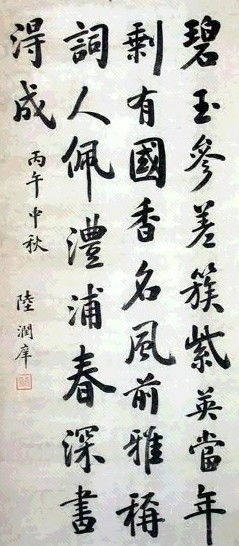 碧玉參差簇紫英當年
剩有國香名風前雅稱
詞人佩澧浦春深書
得成
丙午中秋
陸潤庠